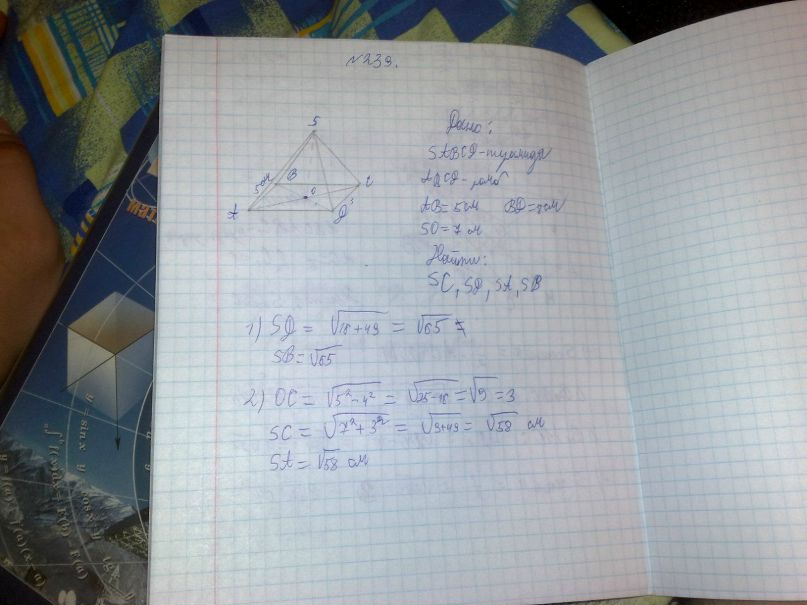 №239.
S
5см
B
C
O
A
D
Дано:
SABCD - пирамида
ABCD - ромб
AB = 5 см BD = 8 см
SO = 7 см
Найти:
SC, SD, SA, SB
1) SD = √16+49 = √65
SB = √65
2) OC = √5²-4² = √25-16 = √9 = 3
SC = √7²+3² = √9+49 = √58 см
SA = √58 см
y = sinx
y